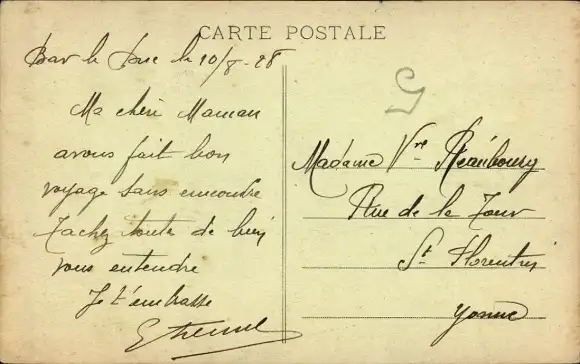 CARTE POSTALE
Bar le Duc le 10/8-28
Ma chèri Maman
avons fait bon
voyage sans encombre
Tachez toute de bien
vous entendre
Je t'embrasse
Etienne
Madame Vve
Rue de la Tour
St Florentin
Yonne